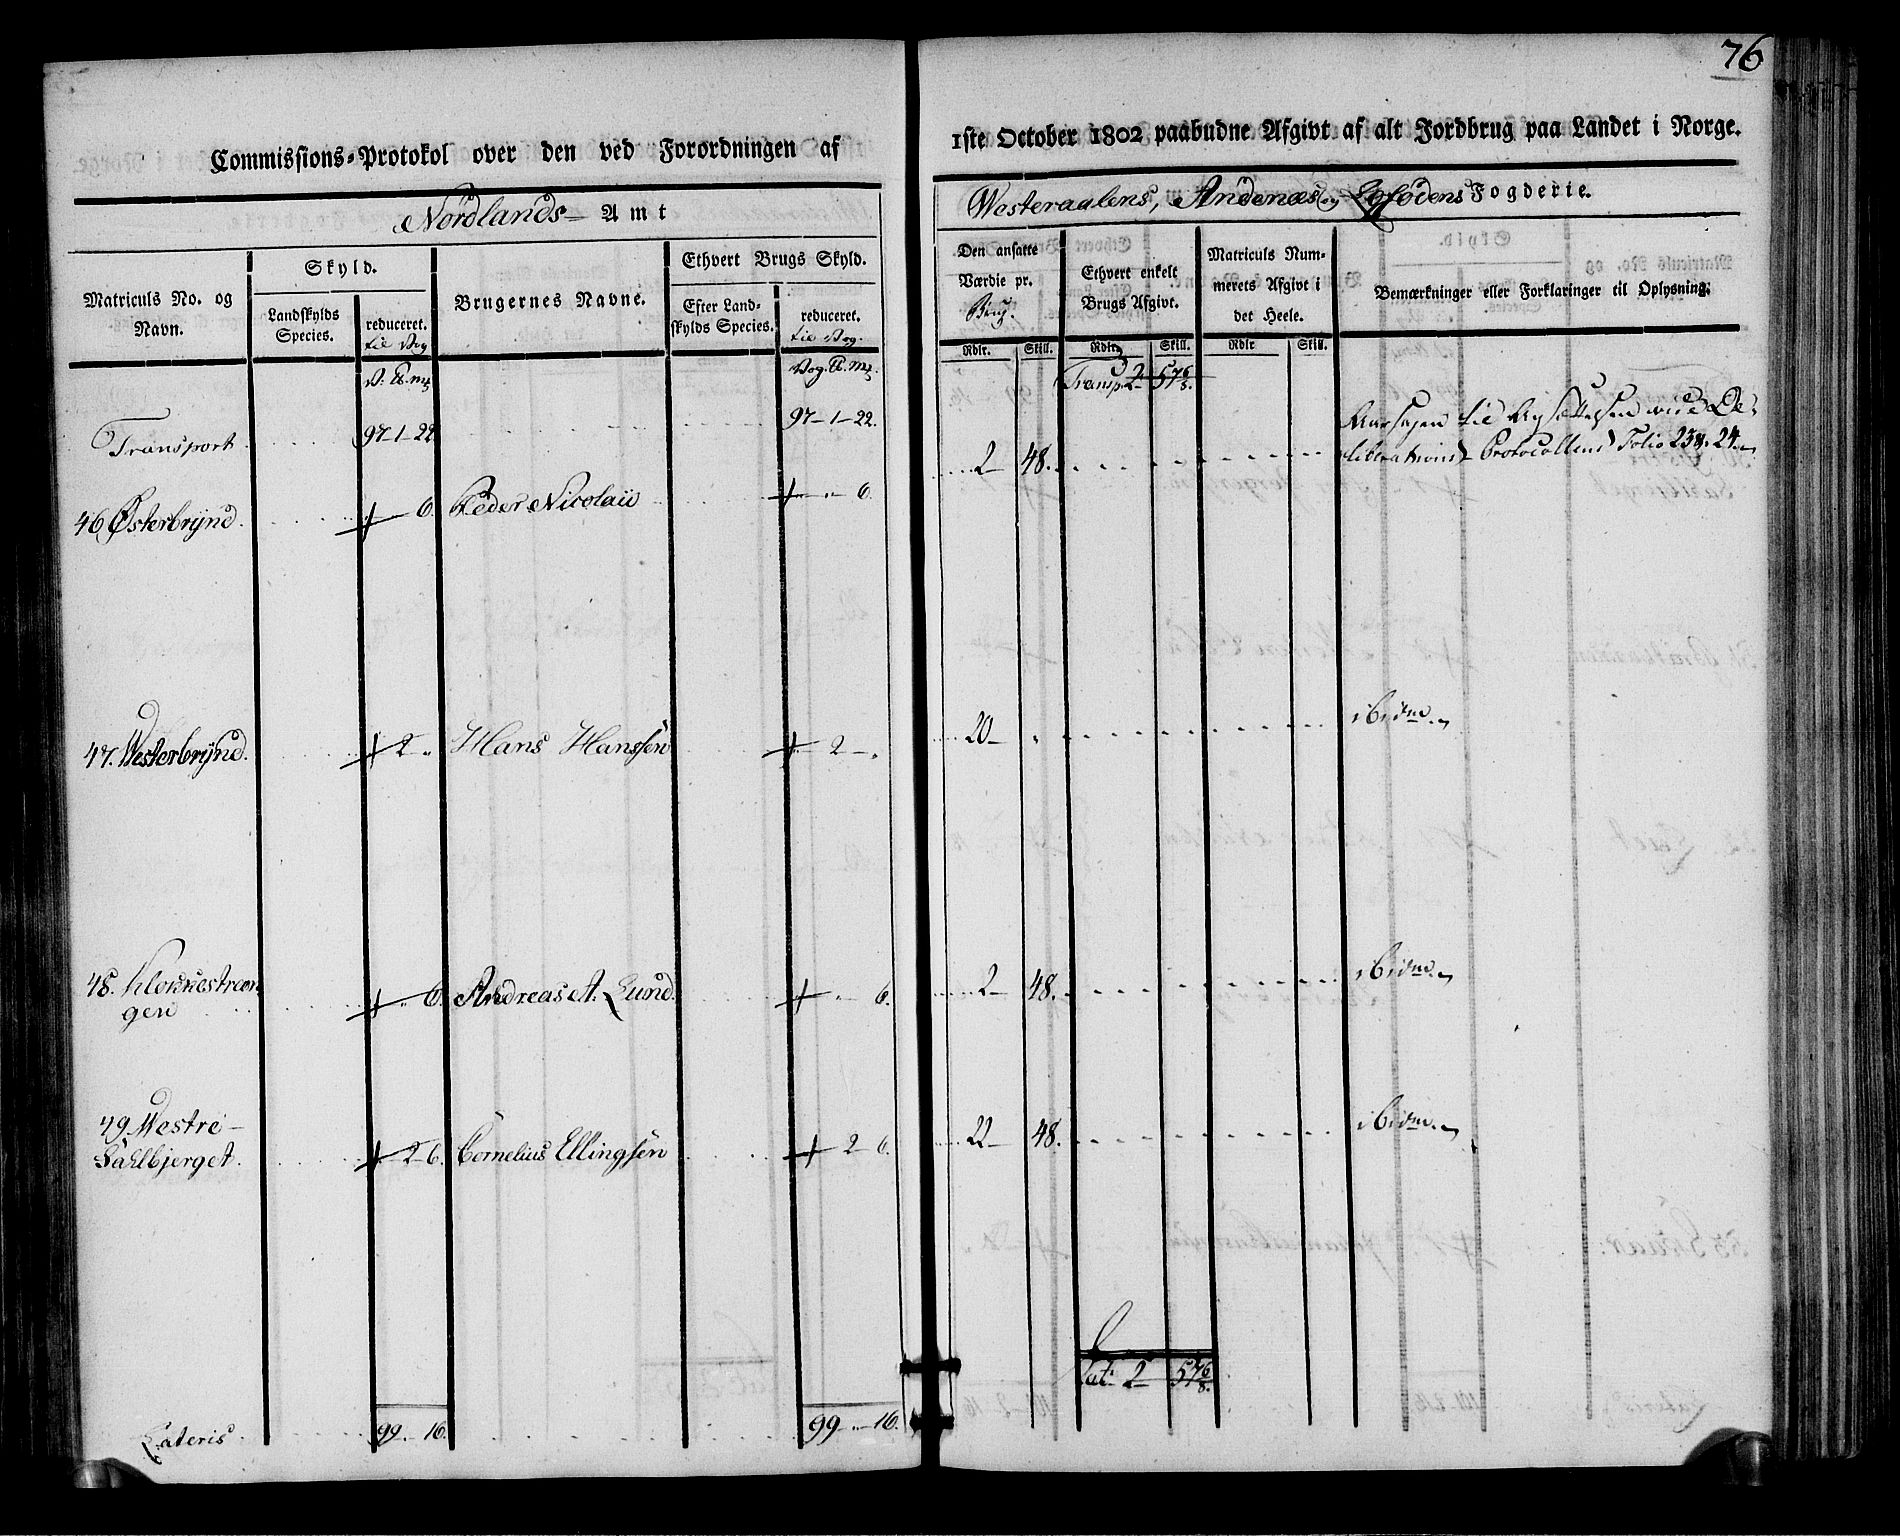 76
Commissions-Protokol over den ved Forordningen af
1ste October 1802 paabudne Afgivt af alt Jordbrug paa Landet i Norge.
Nordlands Amt
Westeraalens, Andenæs og Lofodens Fogderie.
Matriculs No. og Navn.
Skyld.
Landskylds Species.
reduceret. til Vog
Brugernes Navne.
Ethvert Brugs Skyld.
Efter Landskylds Species.
reduceret. til Vog.
Den ansatte Værdie pr. Brug.
Ethvert enkelt Brugs Afgivt.
Matriculs Nummerets Afgivt i det Heele.
Bemærkninger eller Forklaringer til Oplysning:
Rdlr. Skill. Rdlr. Skill. Rdlr Skill.
Transp. 2 - 57 6/8.
Transport 97-1-22 97-1-22.
46 Østerbrÿnd. 6. Peder Nicolaii 6. 2- 48. til Ansættelsen vide De-
liberations Protocollens Folio 23 & 24.
47. Westerbrÿnd. 2 " Hans Hanssen 2 - " 20 - " ibidm.
48. Klokkestran-
gen 6. Andreas A. Lund. 6. 2- 48. ibidm.
49 Westre -
Sahlbjerget. 2-6. Cornelius Ellingsen 2 6. 22- 48. ibidm.
Lat: 2 - 57 6/8.
Lateris. 99 " 16. 99 - " - 16.